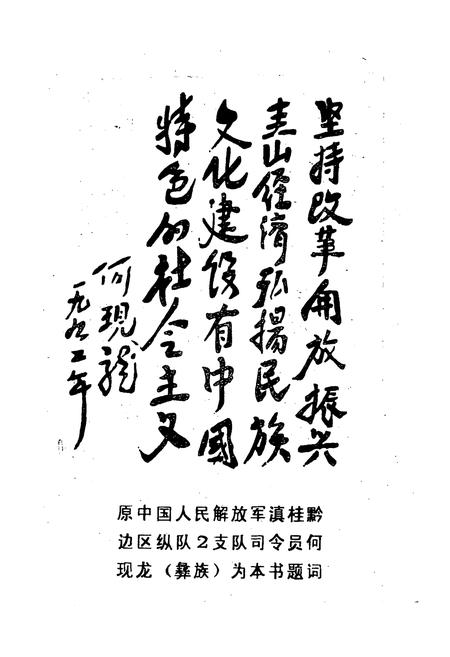 坚持改革开放振兴
圭山经济弘揚民族
文化建设有中國
特色的社会主义
何现龙
一九九二年
原中国人民解放军滇桂黔
边区纵队2支队司令员何
现龙（彝族）为本书题词